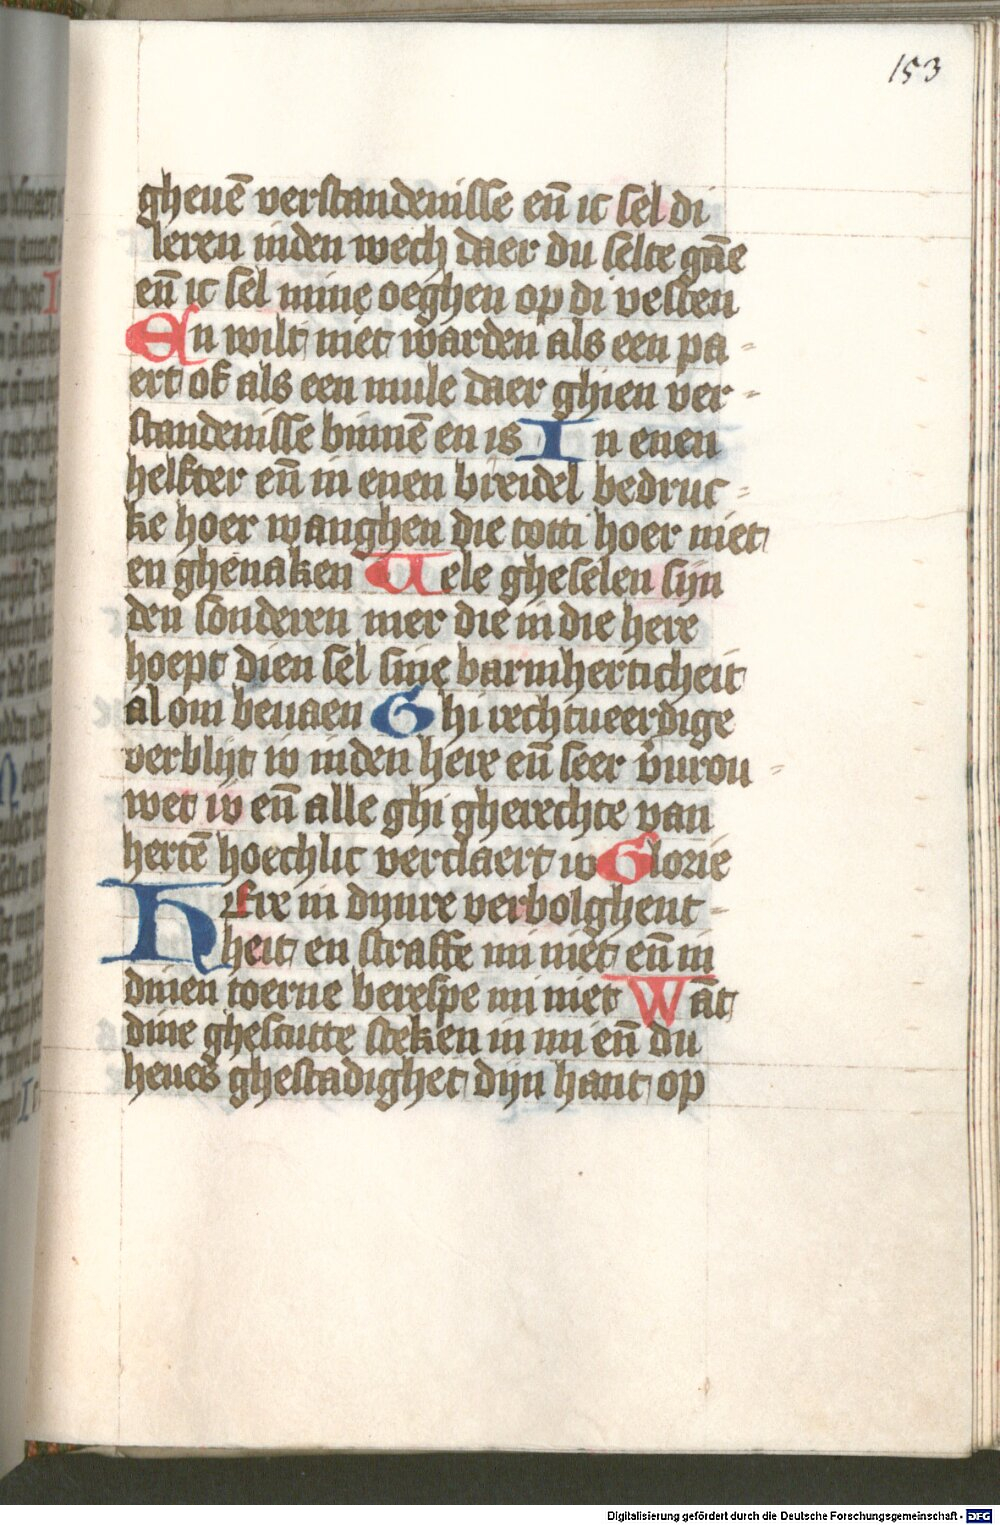 153
gheuē verstandenisse eñ ic sel di
leren inden wech daer du selte gāe
eñ ic sel mine oeghen op di vesten
En wilt niet warden als een pa-
ert of als een mule daer ghien ver-
standenisse binnē en is In enen
helfter eñ in enen breidel bedruc-
ke hoer wanghen die totti hoer niet
en ghenaken Uele gheselen sijn
den sonderen mer die in die here
hoept dien sel sine barmherticheit
al om beuaen Ghi rechtueerdige
verblijt iv inden here eñ seer v'urou-
wet iv eñ alle ghi gherechte van
hertē hoechlic verclaert iv Glorie
Here in dijnre verbolghent-
heit en straffe mi niet eñ in
dinen toerne berespe mi niet Wāt
dine ghescutte steken in mi eñ du
heues ghestadighet dijn hant op
Digitalisierung gefördert durch die Deutsche Forschungsgemeinschaft - DFG